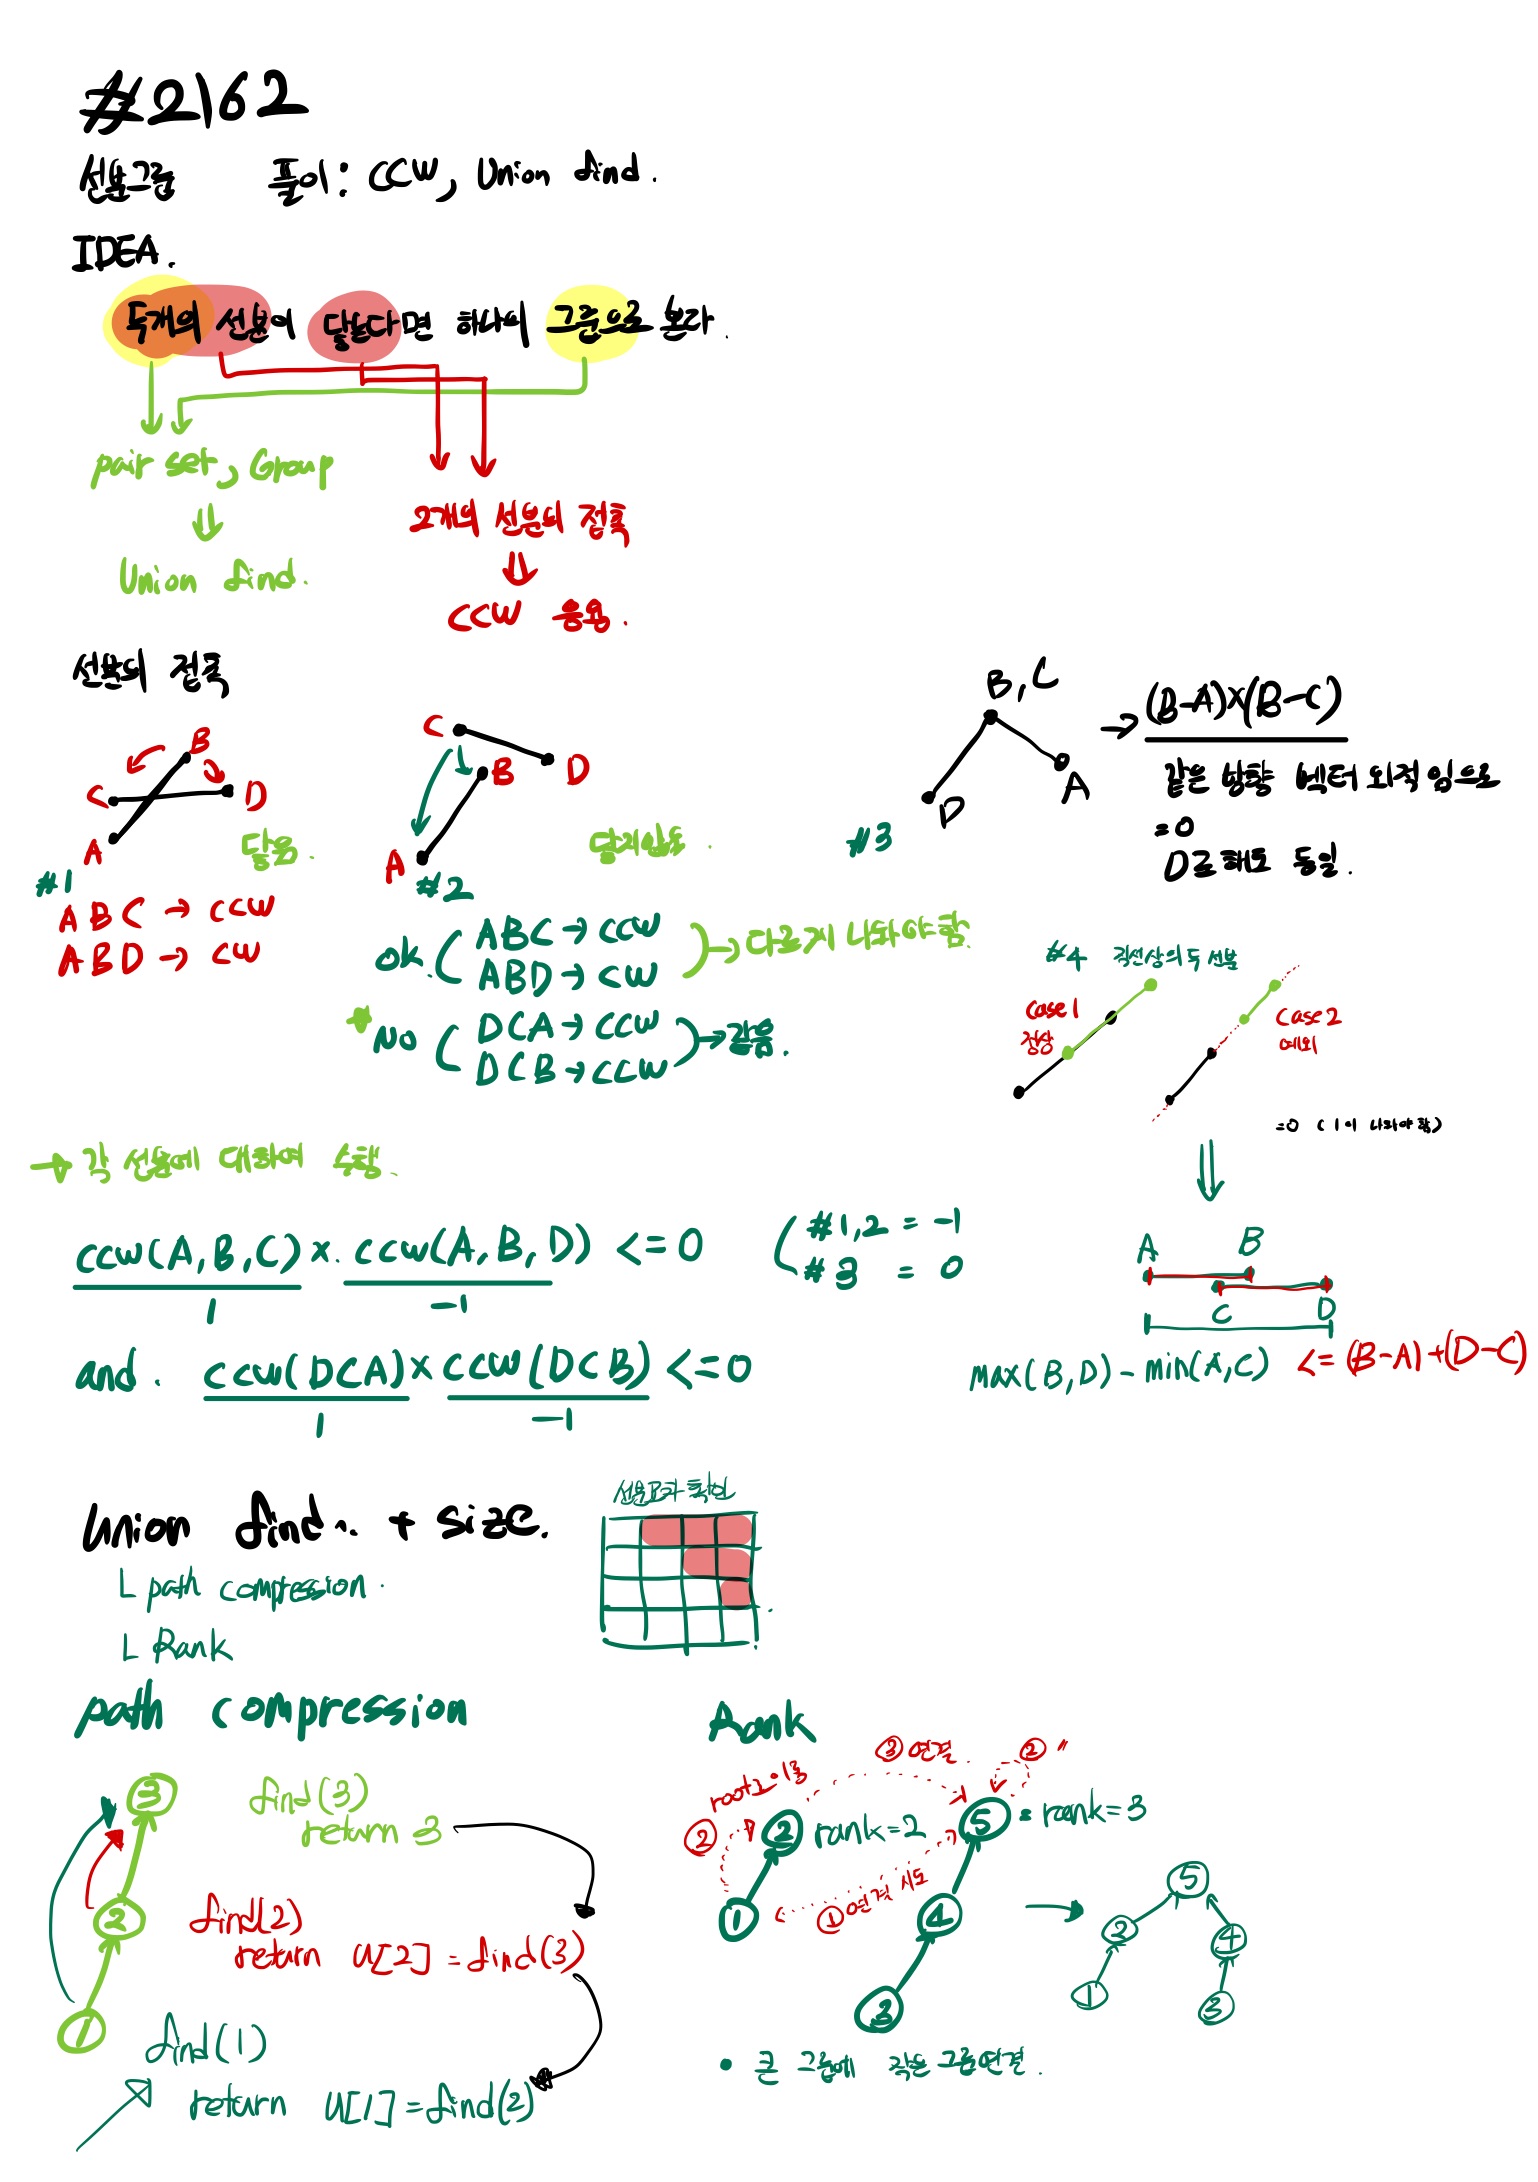 #2162
선분그룹 풀이: CCW, Union find.
IDEA.
두개의 선분이 닿는다면 하나의 그룹으로 본다.
pair set, Group
Union find.
2개의 선분의 접촉
CCW 응용.
선분의 접촉
B
C
D
A
닿음.
#1
ABC → CCW
ABD → CW
C
B
D
A
닿지않음.
#2
ok. ABC → CCW
ABD → CW
→ 다르게 나와야함.
* NO DCA → CCW
DCB → CCW
→ 같음.
B, C
D
A
#3
→ (B-A)×(B-C)
같은 방향 벡터 외적임으로
=0
D로 해도 동일.
#4 직선상의 두 선분
case1
정상
case2
예외
=0 (1이 나와야 함)
→ 각 선분에 대하여 수행.
ccw(A,B,C) x. ccw(A,B,D) <=0
1
-1
#1,2 = -1
#3 = 0
and. ccw(DCA) x ccw(DCB) <=0
1
-1
A
B
C
D
max(B,D) - min(A,C) <= (B-A)+(D-C)
Union find.. + size.
L path compression.
L Rank
path compression
3
2
1
find(3)
return 3
find(2)
return U[2] = find(3)
find(1)
return U[1] = find(2)
Rank
③ 연결.
② "
②
2
rank=2
1
① 연결 시도
5
: rank=3
4
3
5
2
4
1
3
• 큰 그룹에 작은 그룹 연결.